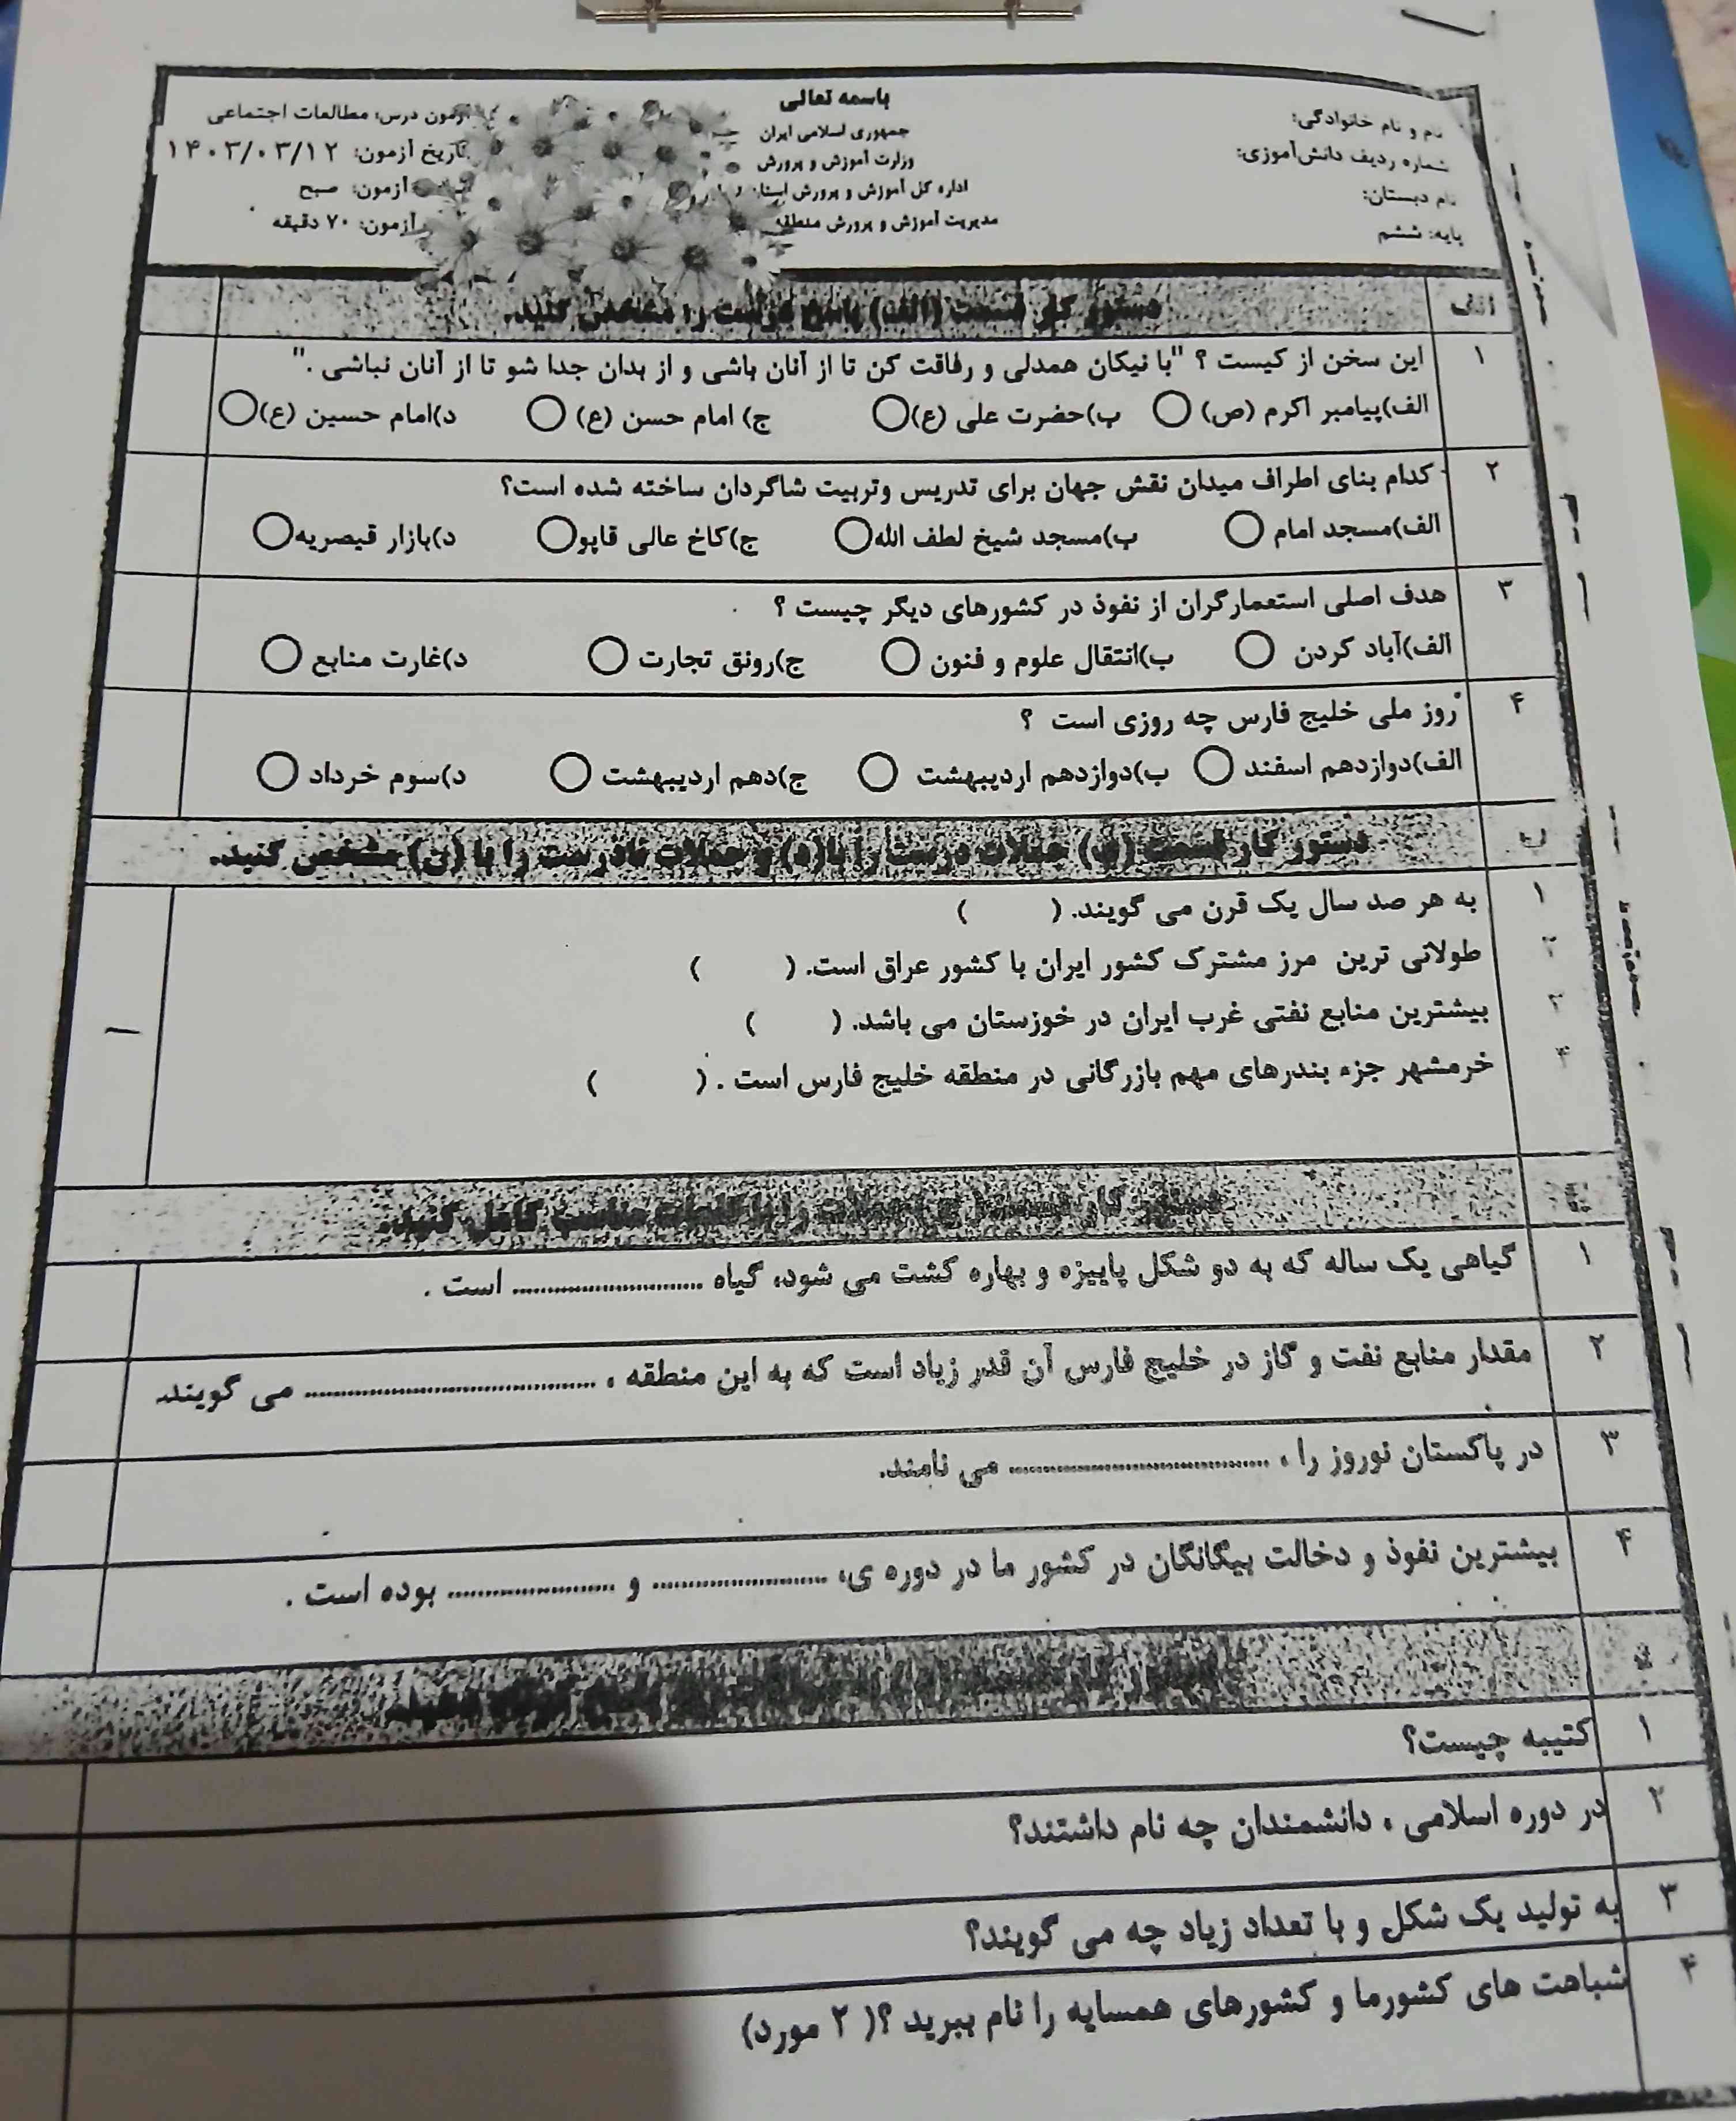 باسمه تعالی
جمهوری اسلامی ایران
وزارت آموزش و پرورش
اداره کل آموزش و پرورش استان
مدیریت آموزش و پرورش منطقه
نام و نام خانوادگی:
شماره ردیف دانش‌آموزی:
نام دبستان:
پایه: ششم
آزمون درس: مطالعات اجتماعی
تاریخ آزمون: ۱۴۰۳/۰۳/۱۲
آزمون: صبح
آزمون: ۷۰ دقیقه
الف دستور کار قسمت (الف) پاسخ درست را مشخص کنید.
۱ این سخن از کیست ؟ "با نیکان همدلی و رفاقت کن تا از آنان باشی و از بدان جدا شو تا از آنان نباشی ."
الف)پیامبر اکرم (ص) ب)حضرت علی (ع) ج) امام حسن (ع) د)امام حسین (ع)
۲ کدام بنای اطراف میدان نقش جهان برای تدریس وتربیت شاگردان ساخته شده است؟
الف)مسجد امام ب)مسجد شیخ لطف الله ج)کاخ عالی قاپو د)بازار قیصریه
۳ هدف اصلی استعمارگران از نفوذ در کشورهای دیگر چیست ؟
الف)آباد کردن ب)انتقال علوم و فنون ج)رونق تجارت د)غارت منابع
۴ روز ملی خلیج فارس چه روزی است ؟
الف)دوازدهم اسفند ب)دوازدهم اردیبهشت ج)دهم اردیبهشت د)سوم خرداد
ب دستور کار قسمت (ب) جملات درست را با(د) و جملات نادرست را با (ن) مشخص کنید.
۱ به هر صد سال یک قرن می گویند. ( )
۲ طولانی ترین مرز مشترک کشور ایران با کشور عراق است. ( )
۳ بیشترین منابع نفتی غرب ایران در خوزستان می باشد. ( )
۴ خرمشهر جزء بندرهای مهم بازرگانی در منطقه خلیج فارس است . ( )
۱
دستور کار قسمت (ج) جملات را با کلمات مناسب کامل کنید.
۱ گیاهی یک ساله که به دو شکل پاییزه و بهاره کشت می شود، گیاه .......................... است .
۲ مقدار منابع نفت و گاز در خلیج فارس آن قدر زیاد است که به این منطقه ، .......................................... می گویند.
۳ در پاکستان نوروز را ، ..................................... می نامند.
۴ بیشترین نفوذ و دخالت بیگانگان در کشور ما در دوره ی، ......................... و ........................ بوده است .
۱ کتیبه چیست؟
۲ در دوره اسلامی ، دانشمندان چه نام داشتند؟
۳ به تولید یک شکل و با تعداد زیاد چه می گویند؟
۴ شباهت های کشورما و کشورهای همسایه را نام ببرید ؟( ۲ مورد)